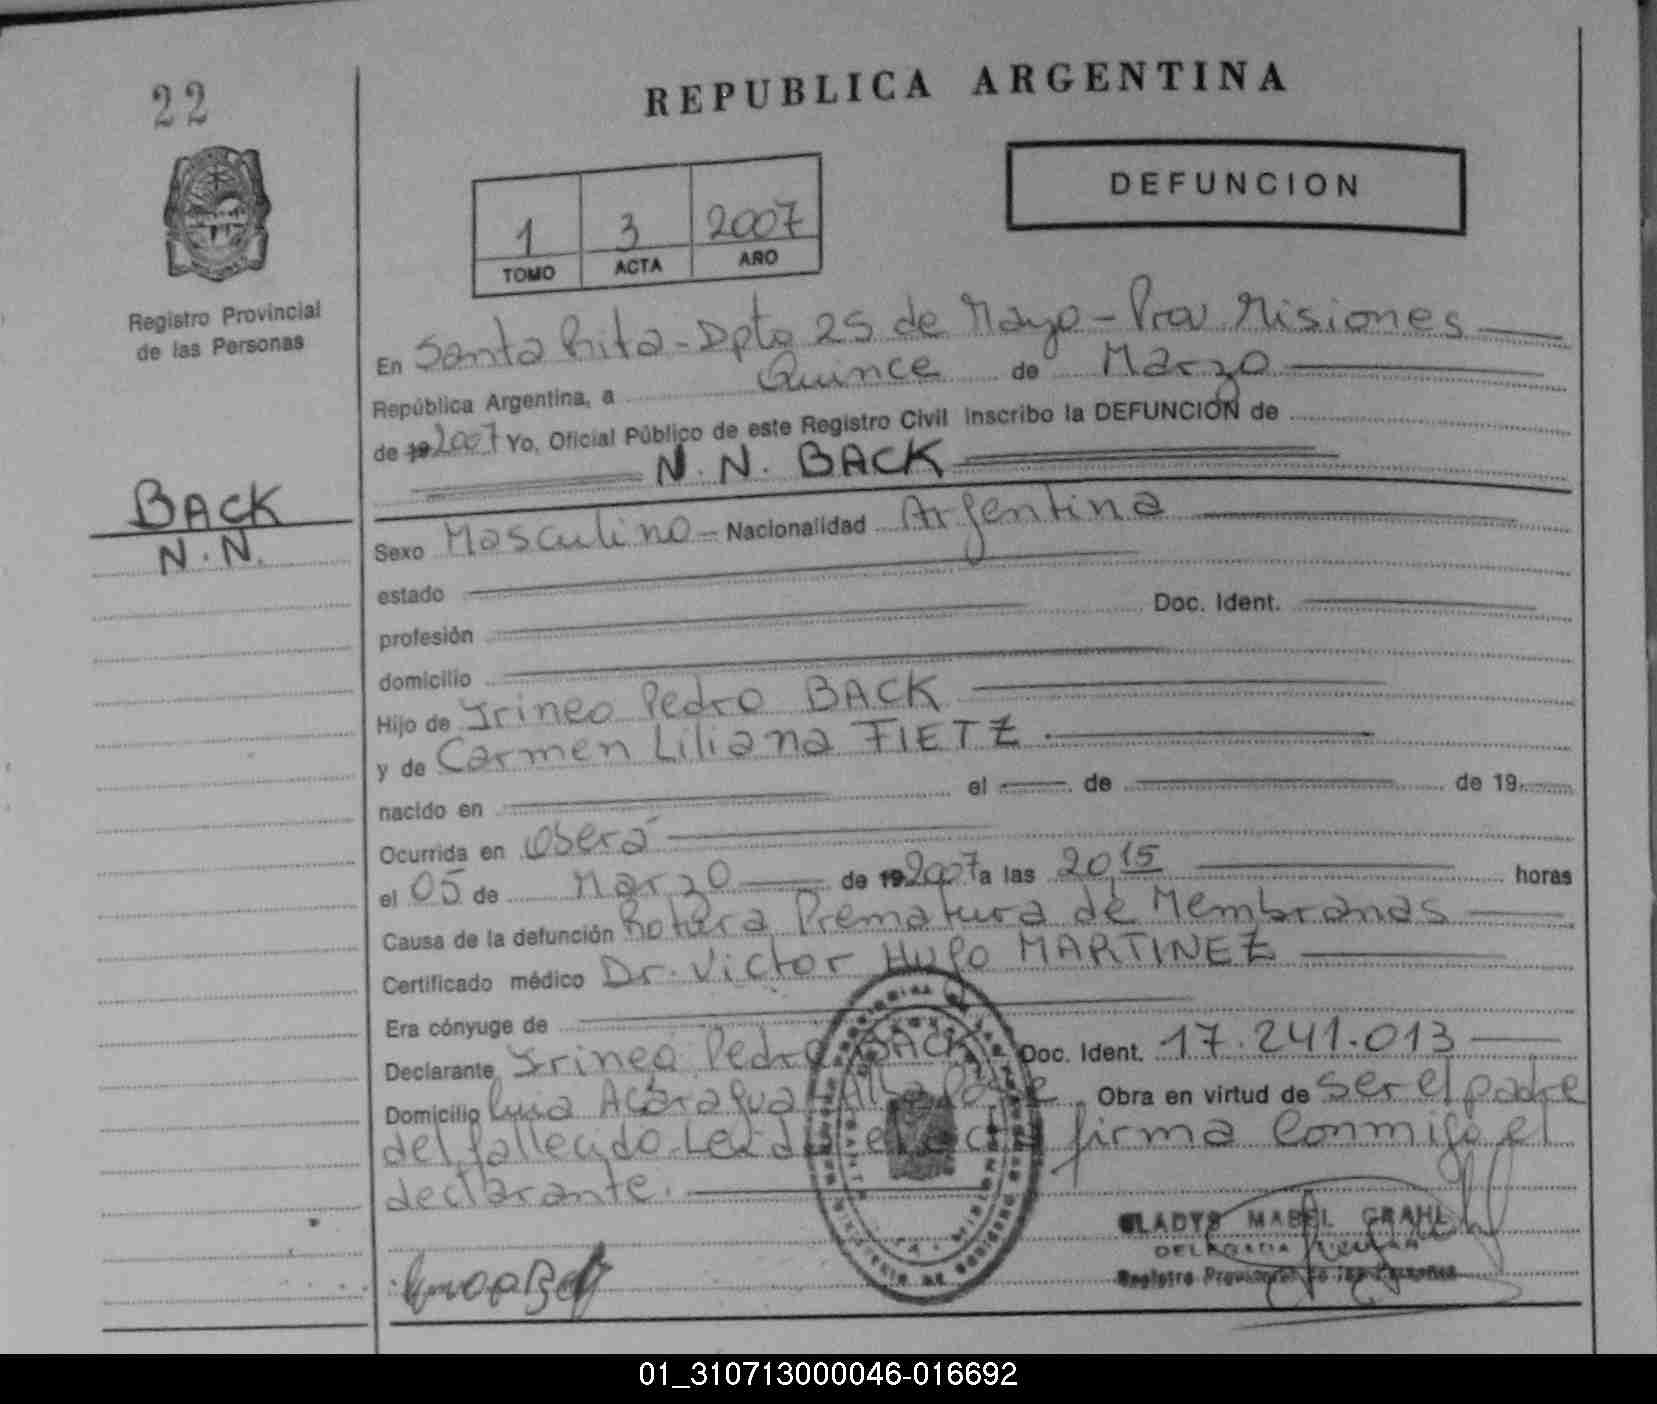 22
REPUBLICA ARGENTINA
DEFUNCION
1 3 2007
TOMO ACTA AÑO
Registro Provincial
de las Personas
En Santa Rita - Dpto 25 de Mayo - Prov. Misiones
República Argentina, a Quince de Marzo
de 19 2007 Yo, Oficial Público de este Registro Civil inscribo la DEFUNCION de
N. N. BACK
BACK
N. N.
Sexo Masculino - Nacionalidad Argentina
estado
profesión Doc. Ident.
domicilio
Hijo de Irineo Pedro BACK
y de Carmen Liliana FIETZ
nacido en el de de 19
Ocurrida en Oberá
el 05 de Marzo de 19 2007 a las 20,15 horas
Causa de la defunción Rotura Prematura de Membranas
Certificado médico Dr. Victor Hugo MARTINEZ
Era cónyuge de
Declarante Irineo Pedro BACK Doc. Ident. 17.241.013
Domicilio Acaraguá Alba Posse Obra en virtud de ser el padre
del fallecido. Leída el acta firma conmigo el
declarante.
GLADYS MABEL GRAHL
DELEGADA
Registro Provincial de las Personas
01_310713000046-016692